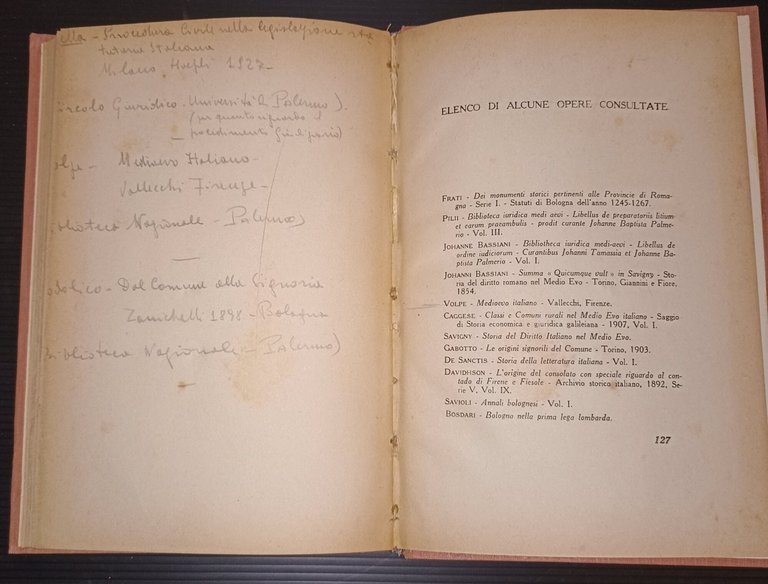 lla - Procedura Civile nella legislazione sta
tutaria Italiana
Milano Hoepli 1927 -
ircolo Giuridico - Università di Palermo).
(per quanto riguarda il
procedimento
olpe - Medioevo Italiano -
Vallecchi Firenze -
iblioteca Nazionale - Palermo)
odolico - Dal Comune alla Signoria
Zanichelli 1898 - Bologna
iblioteca Nazionale - Palermo)
ELENCO DI ALCUNE OPERE CONSULTATE
FRATI - Dei monumenti storici pertinenti alle Provincie di Roma-
gna - Serie I. - Statuti di Bologna dell'anno 1245-1267.
PILII - Biblioteca iuridica medi aevi - Libellus de preparatoriis litium
et earum praeambulis - prodit curante Johanne Baptista Palme-
rio - Vol. III.
JOHANNE BASSIANI - Bibliotheca iuridica medi-aevi - Libellus de
ordine iudiciorum - Curantibus Johanni Tamassia et Johanne Ba-
ptista Palmerio - Vol. I.
JOHANNI BASSIANI - Summa « Quicumque vult » in Savigny - Sto-
ria del diritto romano nel Medio Evo - Torino, Giannini e Fiore,
1854.
VOLPE - Medioevo italiano - Vallecchi, Firenze.
CAGGESE - Classi e Comuni rurali nel Medio Evo italiano - Saggio
di Storia economica e giuridica galileiana - 1907, Vol. I.
SAVIGNY - Storia del Diritto Italiano nel Medio Evo.
GABOTTO - Le origini signorili del Comune - Torino, 1903.
DE SANCTIS - Storia della letteratura italiana - Vol. I.
DAVIDHSON - L'origine del consolato con speciale riguardo al con-
tado di Firene e Fiesole - Archivio storico italiano, 1892, Se-
rie V, Vol. IX.
SAVIOLI - Annali bolognesi - Vol. I.
BOSDARI - Bologna nella prima lega lombarda.
127